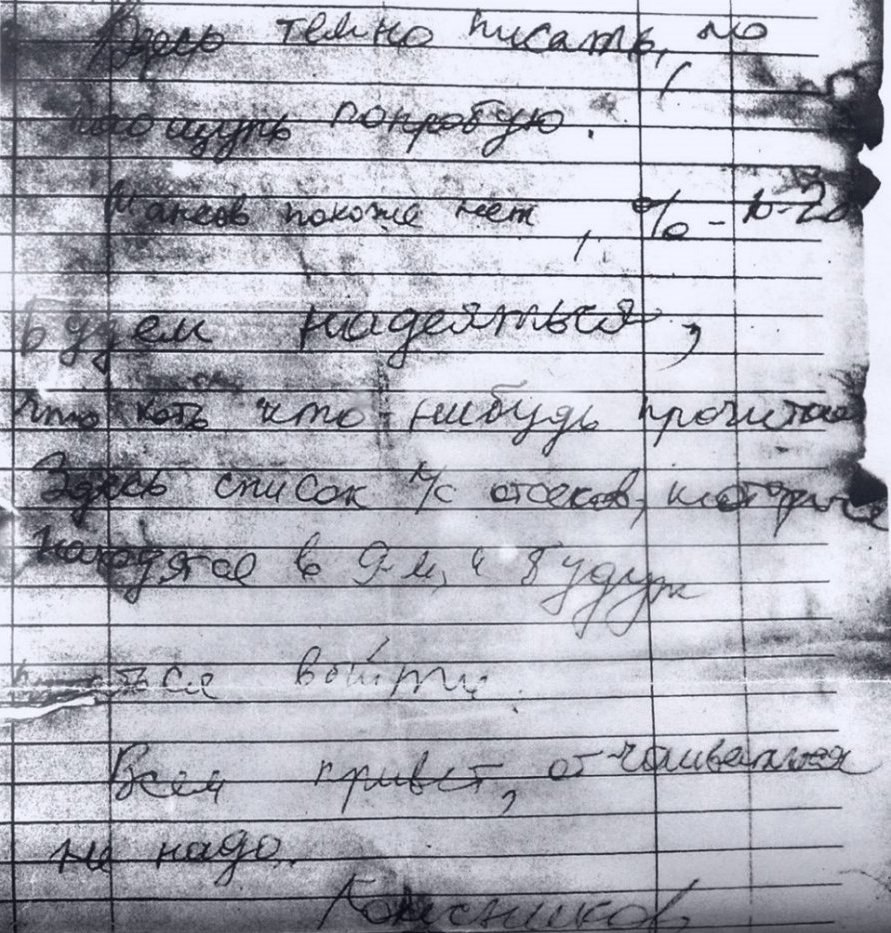 Здесь темно писать, но
наощупь попробую.
Шансов похоже нет, % - 10-20
Будем надеяться,
что хоть кто-нибудь прочитает
Здесь список л/с отсеков, которые
находятся в 9-м, и будут
выйти.
Всем привет, отчаиваться
не надо.
Колесников